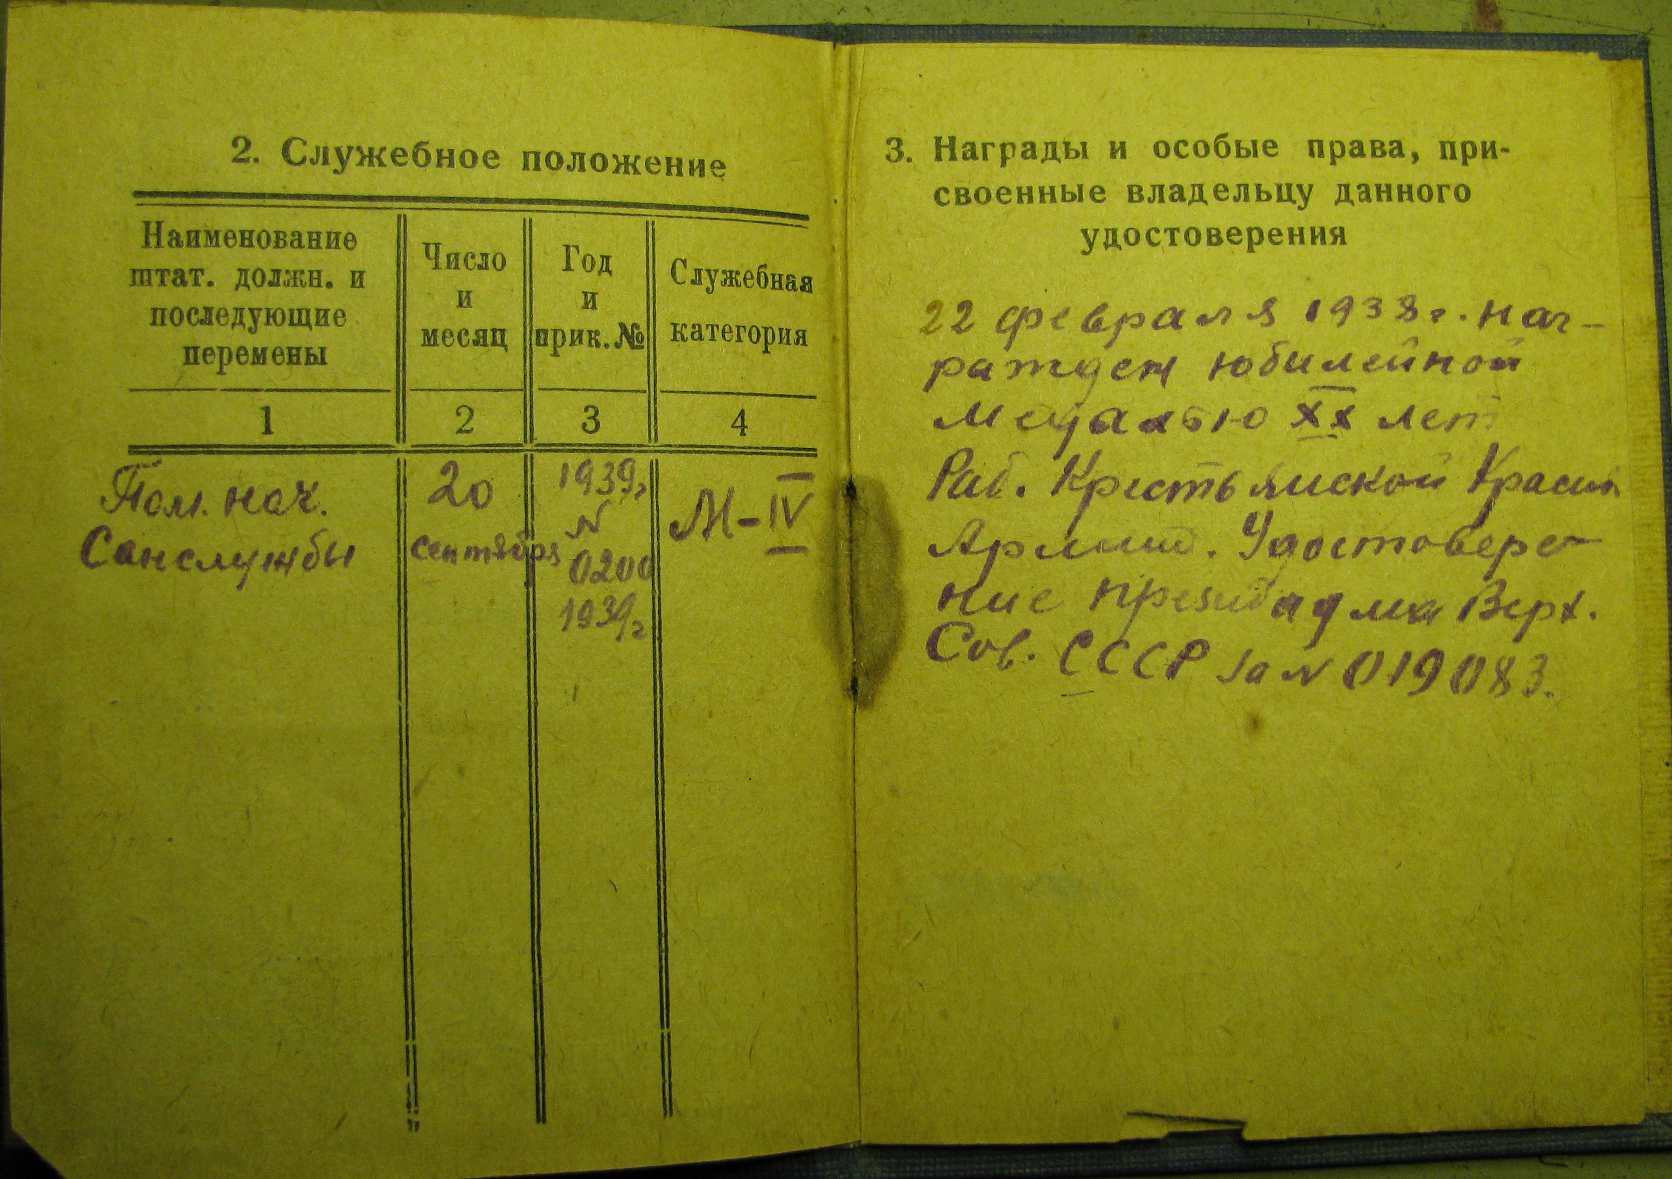 2. Служебное положение
Наименование
штат. должн. и
последующие
перемены
Число
и
месяц
Год
и
прик. №
Служебная
категория
1 2 3 4
Пом. нач.
Санслужбы
20
сентября
1939г
N
0200
1939г
М-IV
3. Награды и особые права, при-
своенные владельцу данного
удостоверения
22 февраля 1938г. наг-
ражден юбилейной
медалью XX лет
Раб. Крестьянской Красн
Армии. Удостовере-
ние Верх.
Сов. СССР за N 019083.